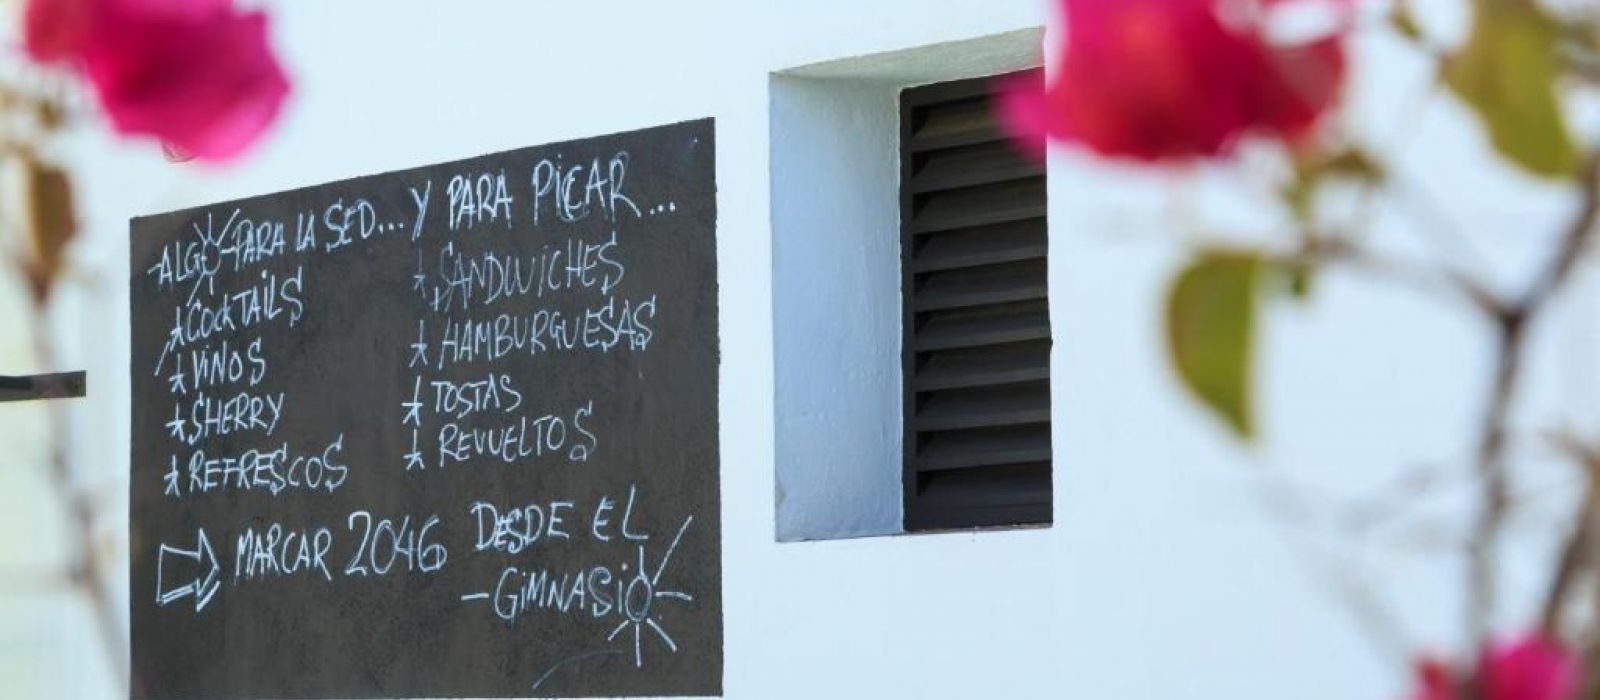 ALGO PARA LA SED... Y PARA PICAR...
* COCKTAILS
* VINOS
* SHERRY
* REFRESCOS
* SANDWICHES
* HAMBURGUESAS
* TOSTAS
* REVUELTOS
MARCAR 2046 DESDE EL
- GIMNASIO -